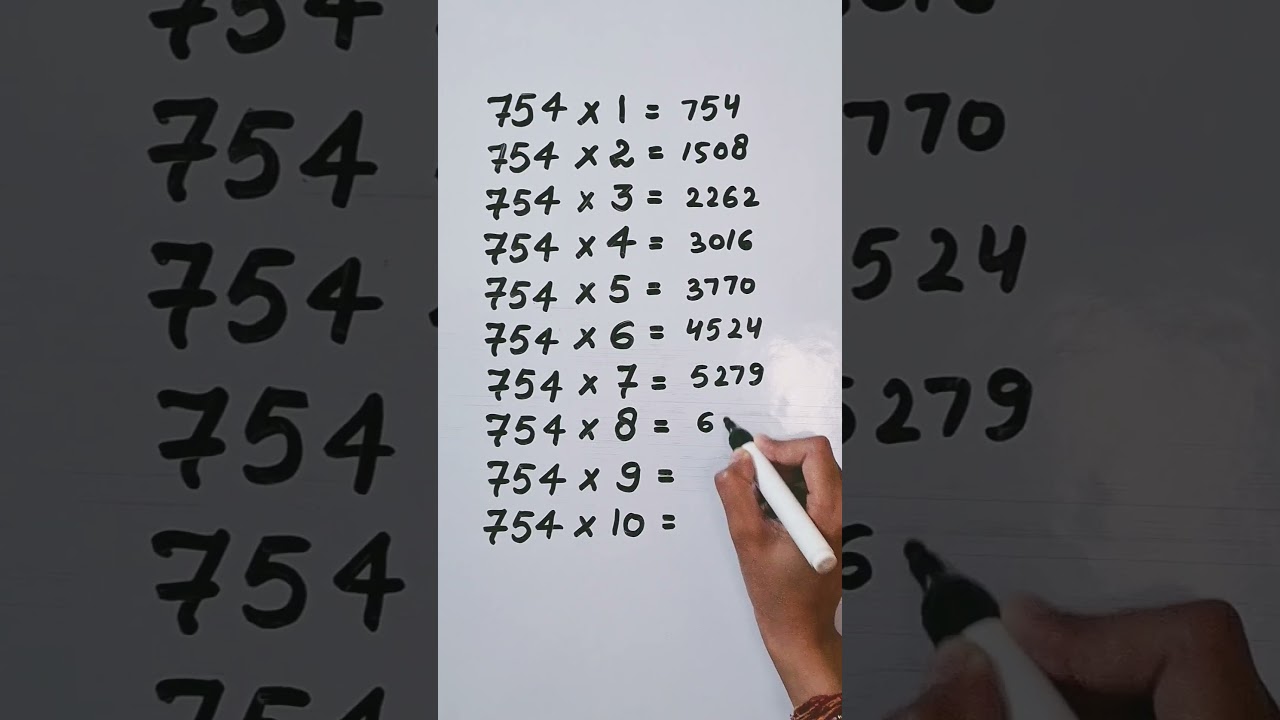 754 x 1 = 754
754 x 2 = 1508
754 x 3 = 2262
754 x 4 = 3016
754 x 5 = 3770
754 x 6 = 4524
754 x 7 = 5279
754 x 8 = 6
754 x 9 =
754 x 10 =